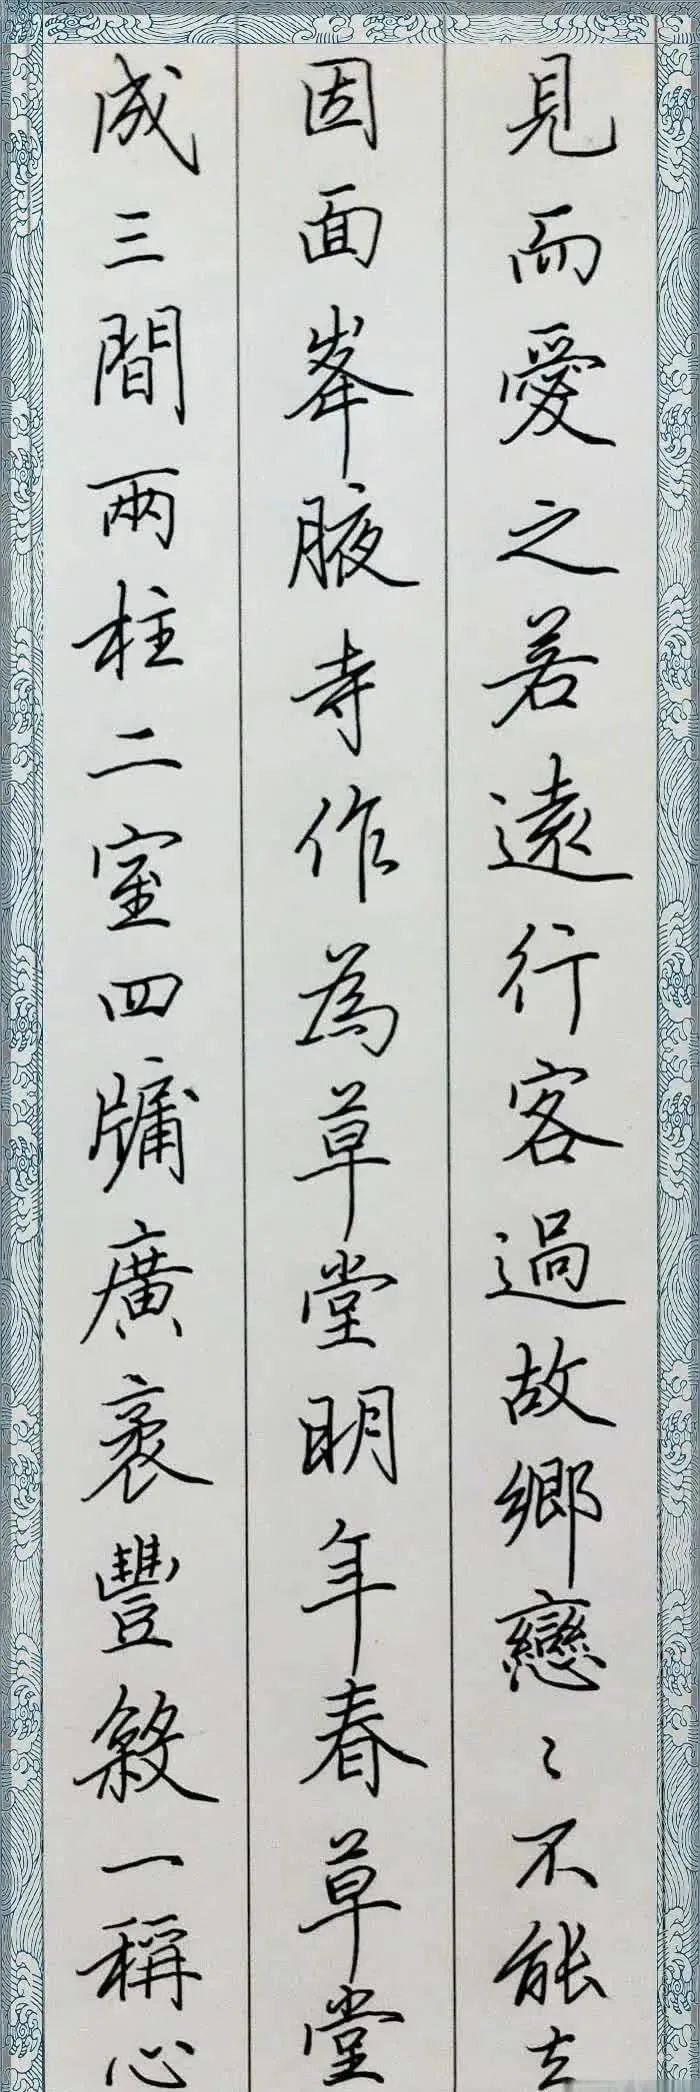 見而愛之若遠行客過故鄉戀〻不能去
因面峯腋寺作為草堂明年春草堂
成三間兩柱二室四牖廣袤豐殺一稱心